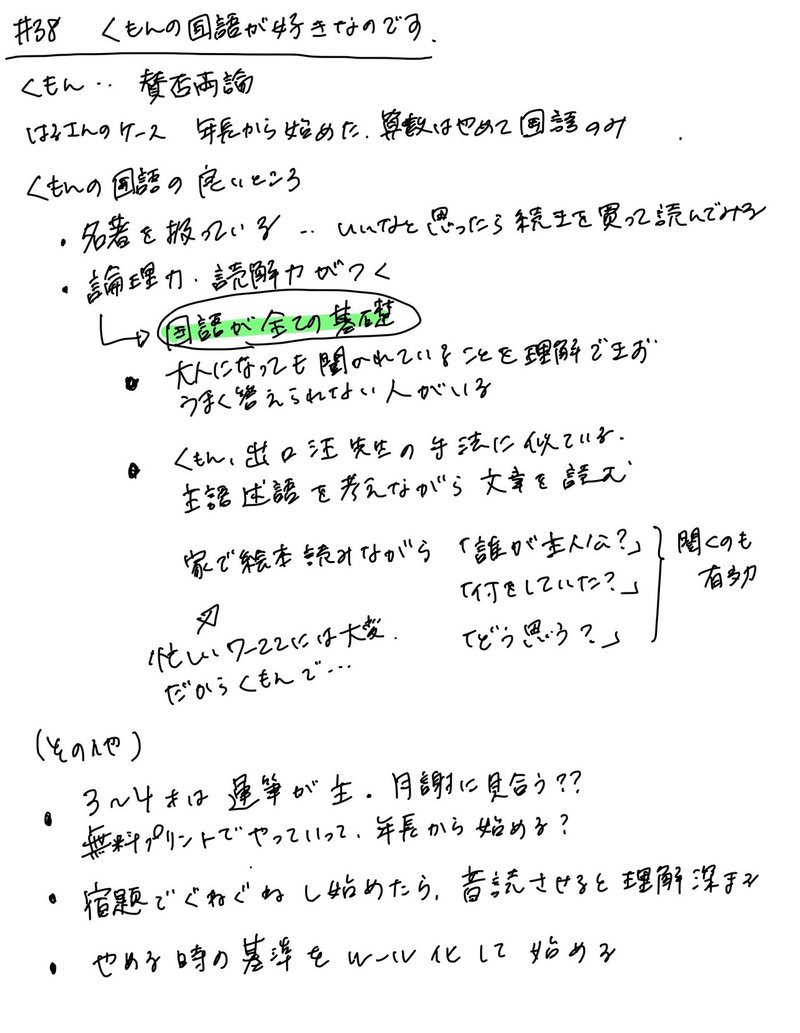 #38 くもんの国語が好きなのです.
くもん‥ 賛否両論
はるさんのケース 年長から始めた. 算数はやめて国語のみ.
くもんの国語の良いところ
・名著を扱っている ‥ いいなと思ったら続きを買って読んでみる
・論理力・読解力がつく
国語が全ての基礎
● 大人になっても聞かれていることを理解できず
うまく答えられない人がいる
● くもん、出口汪先生の手法に似ている.
主語述語を考えながら文章を読む
家で絵本読みながら 「誰が主人公?」
「何をしていた?」
「どう思う?」
聞くのも
有効
忙しいワーママには大変.
だからくもんで…
(その他)
● 3〜4才は運筆が主. 月謝に見合う??
無料プリントでやっていって、年長から始める?
● 宿題でぐねぐねし始めたら、音読させると理解深まる
● やめる時の基準をルール化して始める